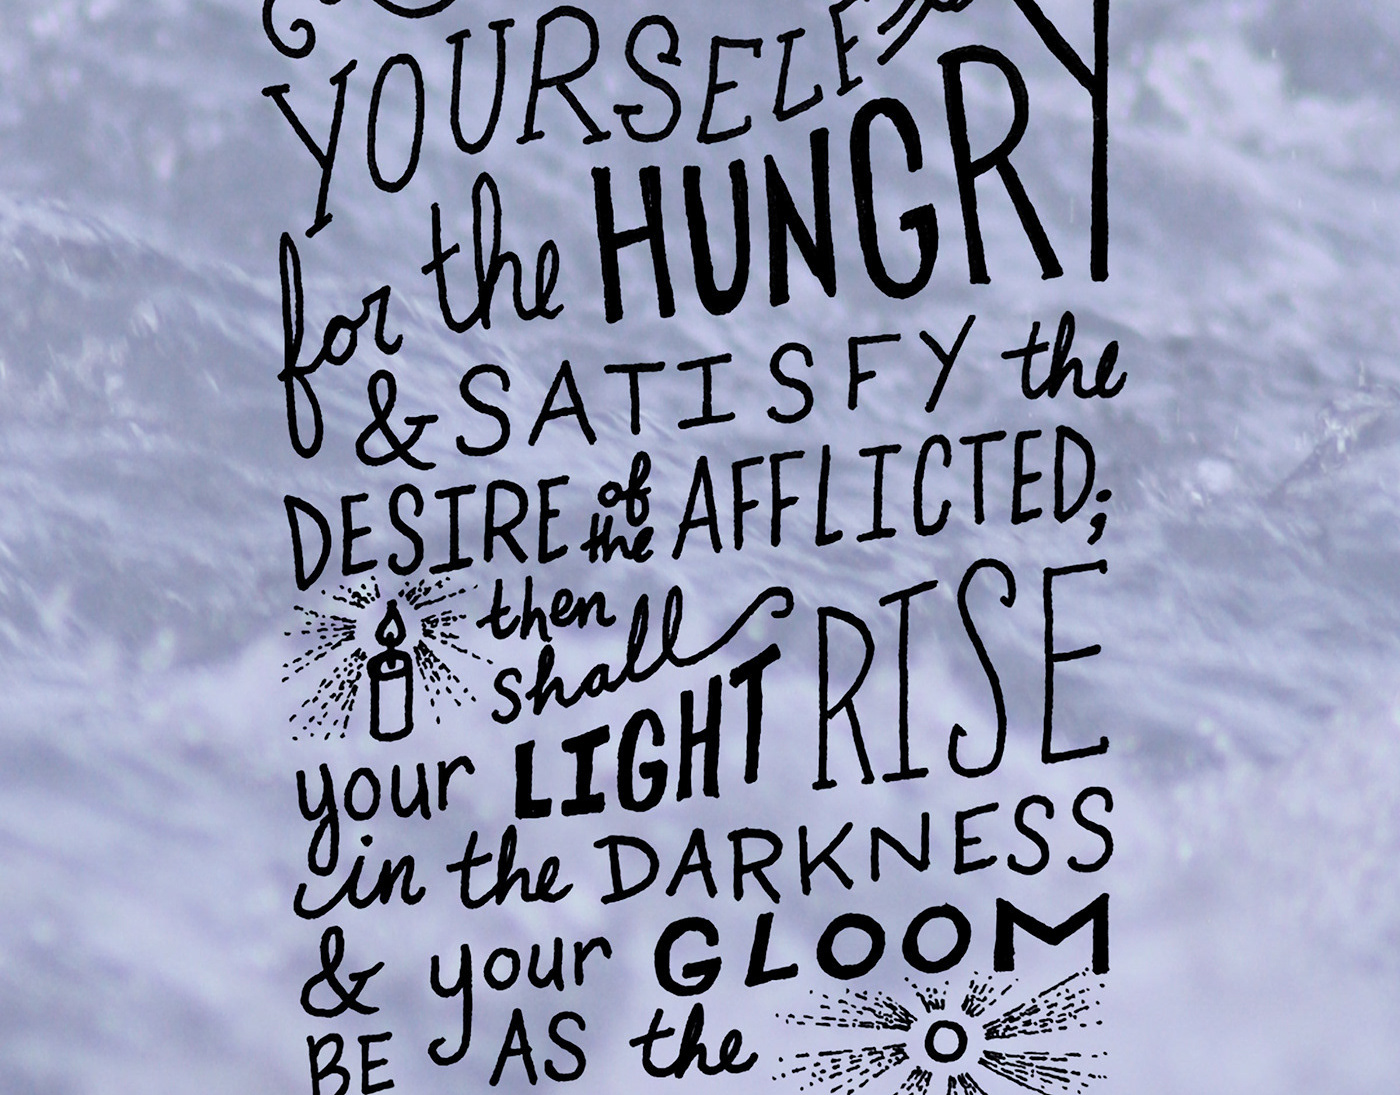 YOURSELF
for the HUNGRY
& SATISFY the
DESIRE of the AFFLICTED;
then shall
your LIGHT RISE
in the DARKNESS
& your GLOOM
BE AS the